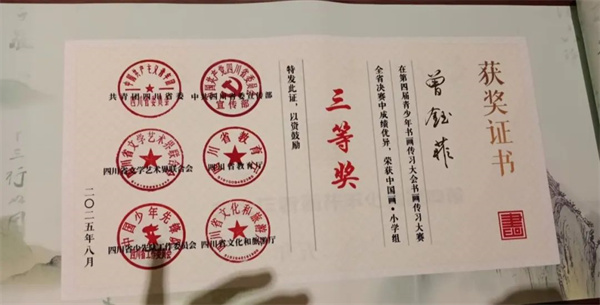 获奖证书
曾钰菲
在第四届青少年书画传习大会书画传习大赛
全省决赛中成绩优异，荣获中国画·小学组
三等奖
特发此证，以资鼓励
共青团四川省委
中共四川省委宣传部
四川省文学艺术界联合会
四川省教育厅
四川省少先队工作委员会
四川省文化和旅游厅
二〇二五年八月
三行